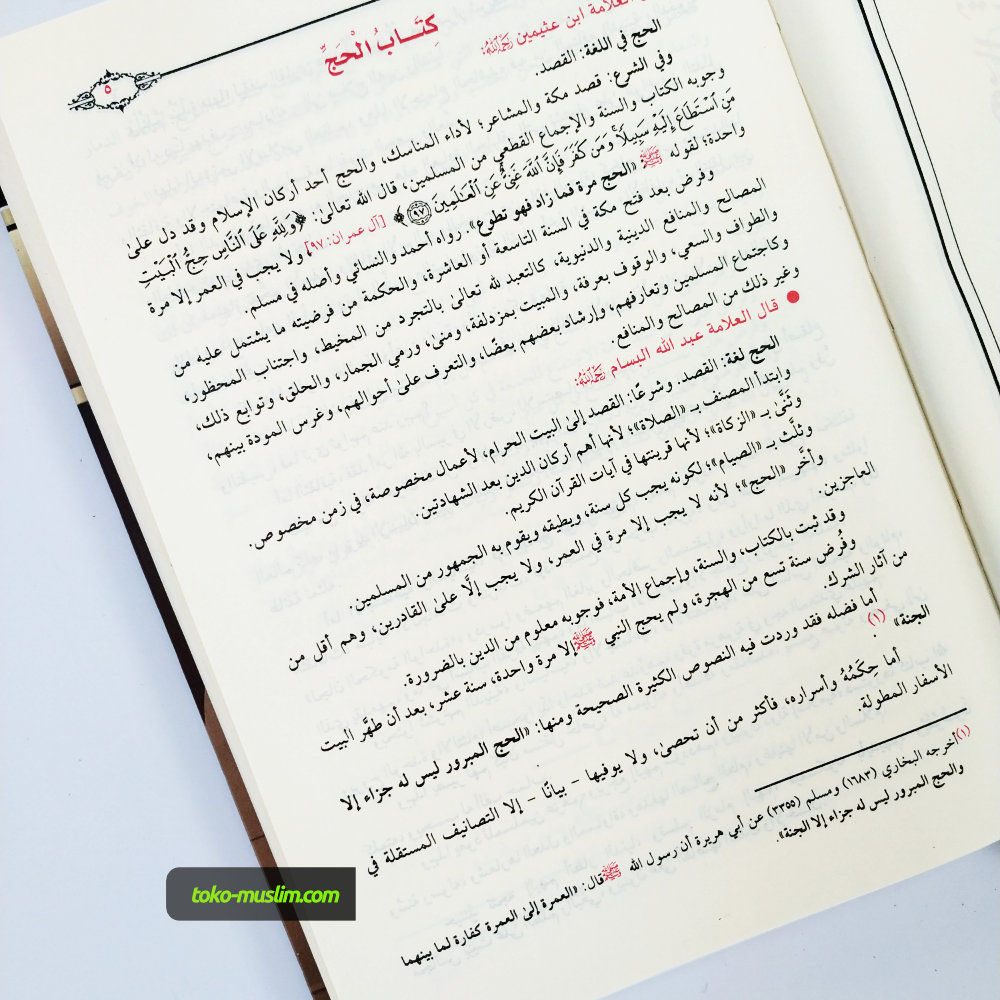 كِتَابُ الْحَجِّ
٥
العلامة ابن عثيمين رَحِمَهُ اللهُ:
الحج في اللغة: القصد.
وفي الشرع: قصد مكة والمشاعر؛ لأداء المناسك، والحج أحد أركان الإسلام وقد دل علىٰ
وجوبه الكتاب والسنة والإجماع القطعي من المسلمين، قال الله تعالىٰ: ﴿وَلِلَّهِ عَلَى ٱلنَّاسِ حِجُّ ٱلْبَيْتِ
مَنِ ٱسْتَطَاعَ إِلَيْهِ سَبِيلًا ۚ وَمَن كَفَرَ فَإِنَّ ٱللَّهَ غَنِىٌّ عَنِ ٱلْعَـٰلَمِينَ ٩٧﴾ [آل عمران: ٩٧] ولا يجب في العمر إلا مرة
واحدة؛ لقوله ﷺ «الحج مرة فما زاد فهو تطوع». رواه أحمد والنسائي وأصله في مسلم.
وفرض بعد فتح مكة في السنة التاسعة أو العاشرة، والحكمة من فرضيته ما يشتمل عليه من
المصالح والمنافع الدينية والدنيوية، كالتعبد لله تعالىٰ بالتجرد من المخيط، واجتناب المحظور،
والطواف والسعي، والوقوف بعرفة، والمبيت بمزدلفة، ومنىٰ، ورمي الجمار، والحلق، وتوابع ذلك،
وكاجتماع المسلمين وتعارفهم، وإرشاد بعضهم بعضًا، والتعرف علىٰ أحوالهم، وغرس المودة بينهم،
وغير ذلك من المصالح والمنافع.
● قال العلامة عبد الله البسام رَحِمَهُ اللهُ:
الحج لغة: القصد. وشرعًا: القصد إلىٰ البيت الحرام، لأعمال مخصوصة، في زمن مخصوص.
وابتدأ المصنف بـ «الصلاة»؛ لأنها أهم أركان الدين بعد الشهادتين.
وثَنَّىٰ بـ «الزكاة»؛ لأنها قرينتها في آيات القرآن الكريم.
وثلَّث بـ «الصيام»؛ لكونه يجب كل سنة، ويطيقه ويقوم به الجمهور من المسلمين.
وأخَّر «الحج»؛ لأنه لا يجب إلا مرة في العمر، ولا يجب إلَّا علىٰ القادرين، وهم أقل من
العاجزين.
وقد ثبت بالكتاب، والسنة، وإجماع الأمة، فوجوبه معلوم من الدين بالضرورة.
وفُرض سنة تسع من الهجرة، ولم يحج النبي ﷺ إلا مرة واحدة، سنة عشر، بعد أن طهَّر البيت
من آثار الشرك.
أما فضله فقد وردت فيه النصوص الكثيرة الصحيحة ومنها: «الحج المبرور ليس له جزاء إلا
الجنة» (١).
أما حِكَمُهُ وأسراره، فأكثر من أن تحصىٰ، ولا يوفيها - بيانًا - إلا التصانيف المستقلة في
الأسفار المطولة.
(١) أخرجه البخاري (١٦٨٣) ومسلم (٣٣٥٥) عن أبي هريرة أن رسول الله ﷺ قال: «العمرة إلىٰ العمرة كفارة لما بينهما
والحج المبرور ليس له جزاء إلا الجنة».
toko-muslim.com